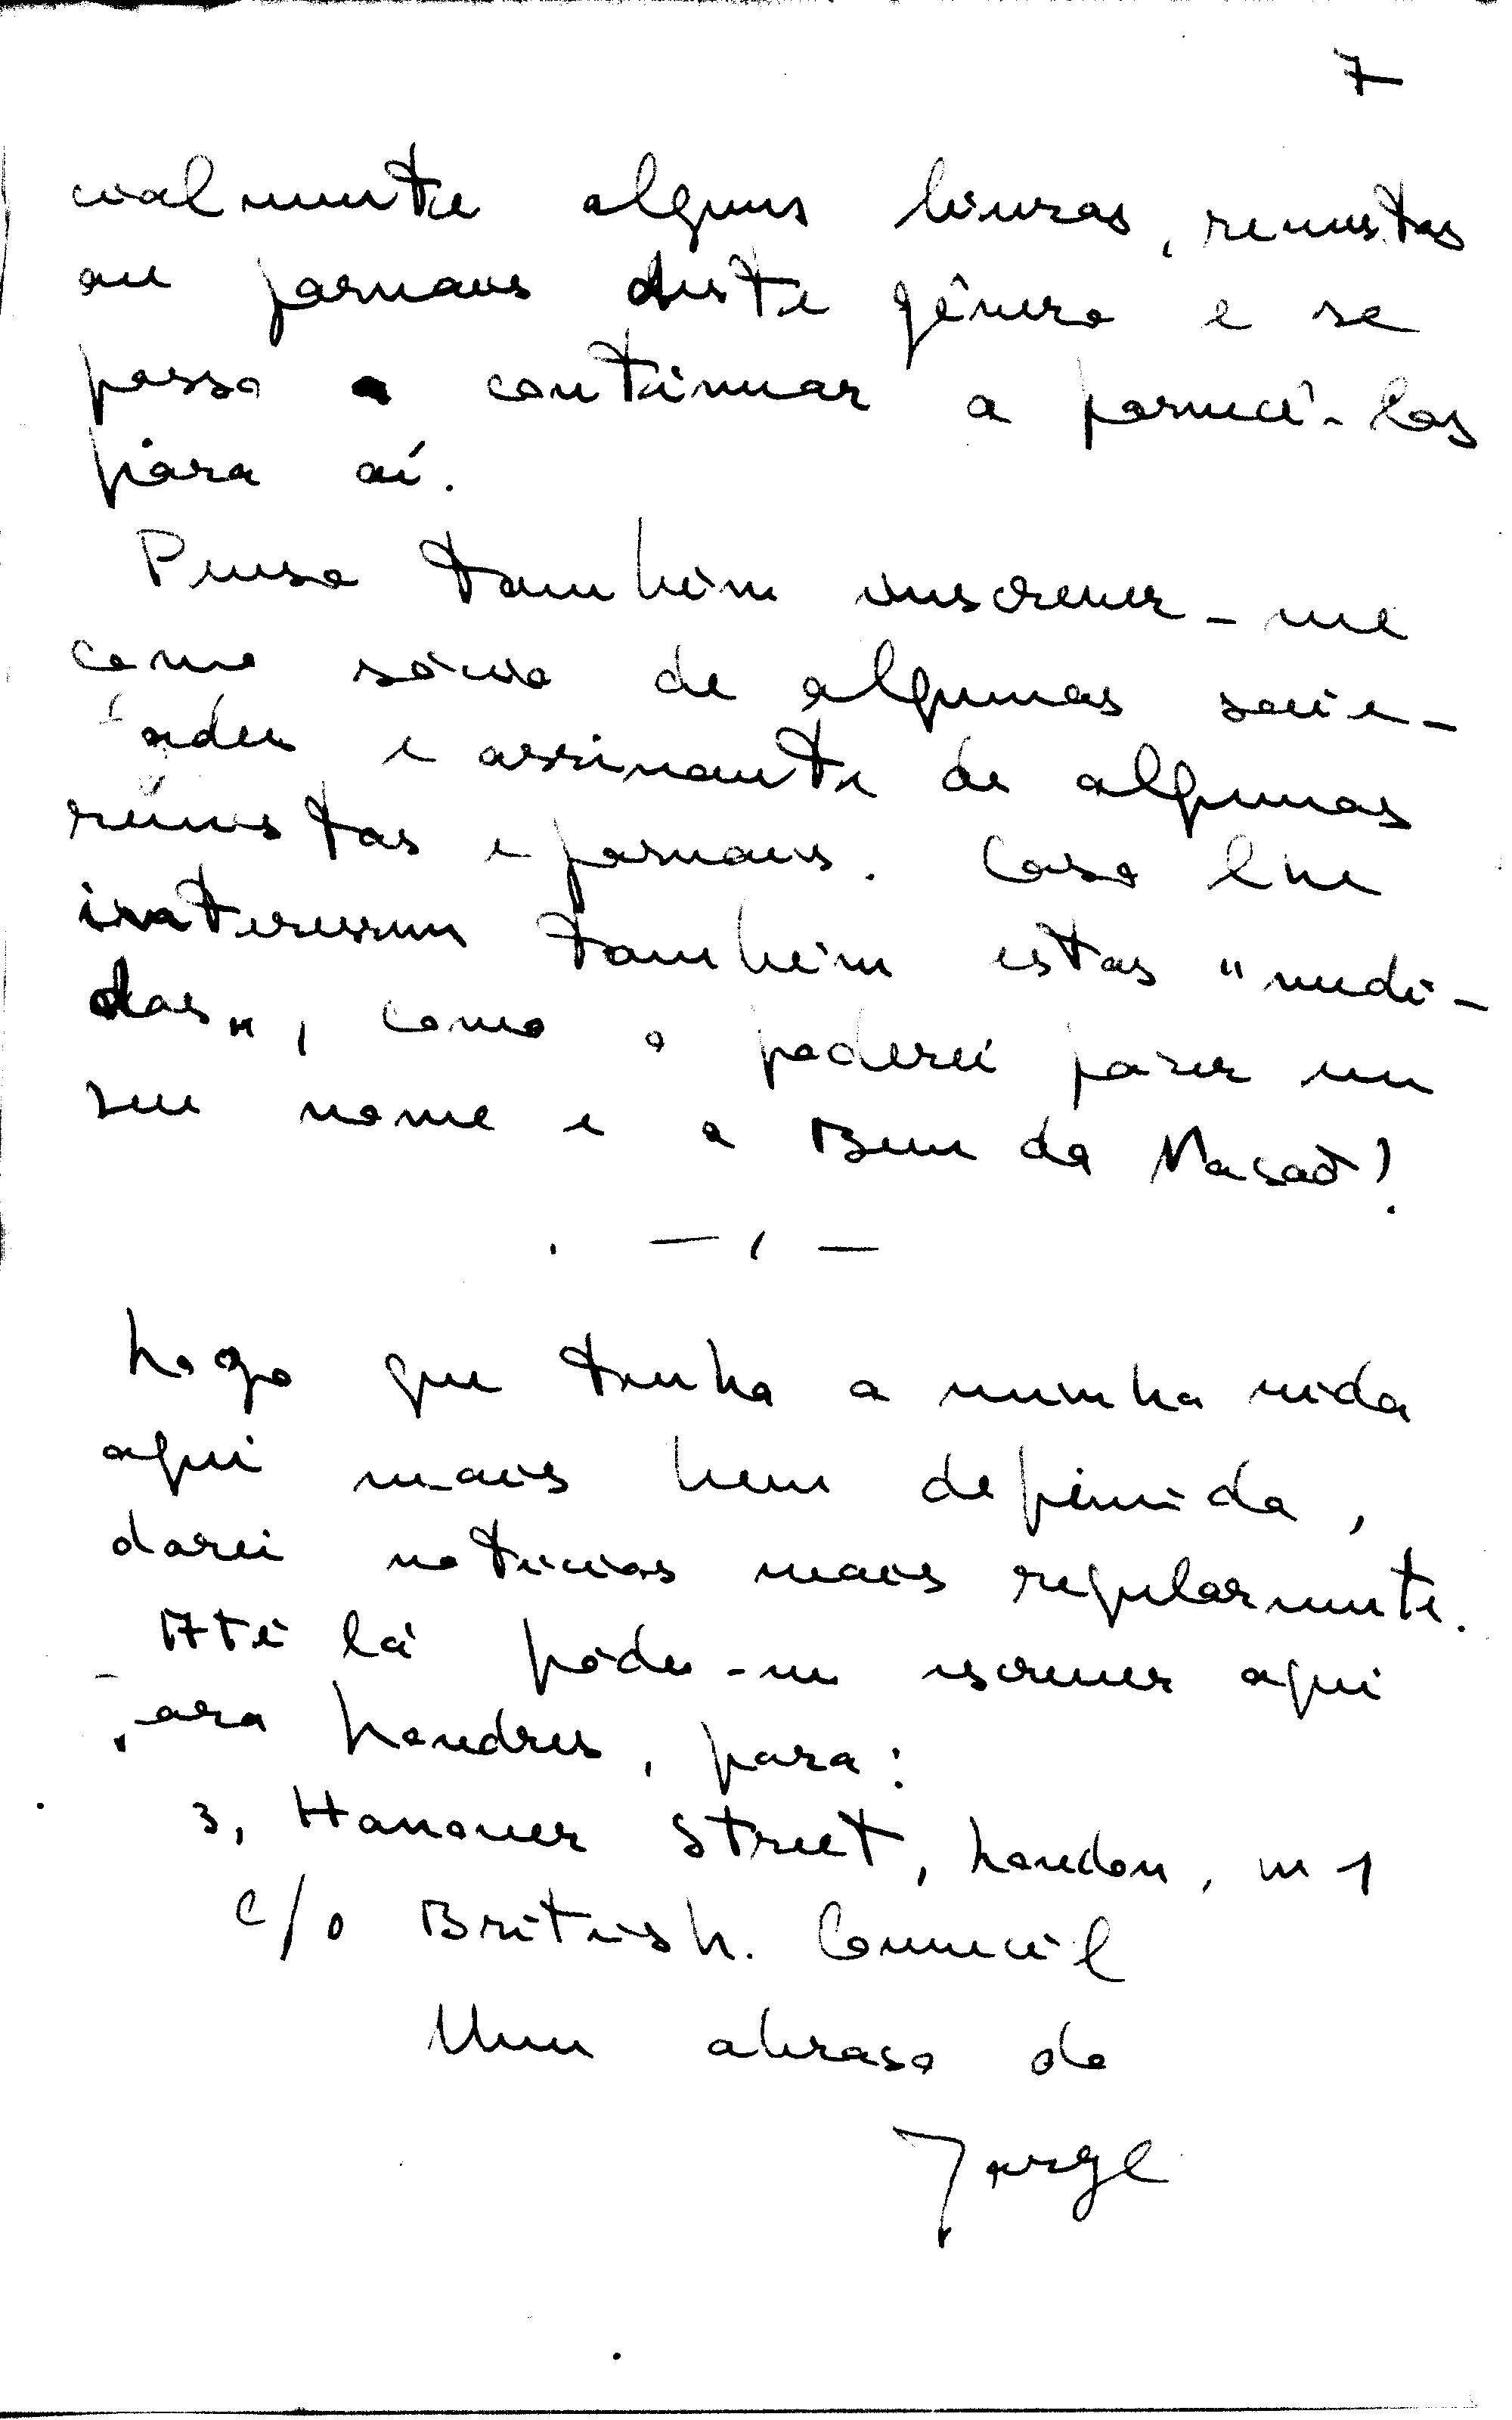 7
cialmente alguns livros, revistas
ou jornais deste gênero e se
posso continuar a fornecê-los
para aí.
Penso também inscrever-me
como sócio de algumas socie-
ades e assinante de algumas
revistas e jornais. Caso lhe
interessem também estas "medi-
das", como o poderei fazer em
seu nome e a Bem da Nação?
. — , —
Logo que tenha a minha vida
aqui mais bem definida,
darei notícias mais regularmente.
Até lá pode-me escrever aqui
para Londres, para:
3, Hanover Street, London, W 1
c/o British. Council
Um abraço do
Jorge